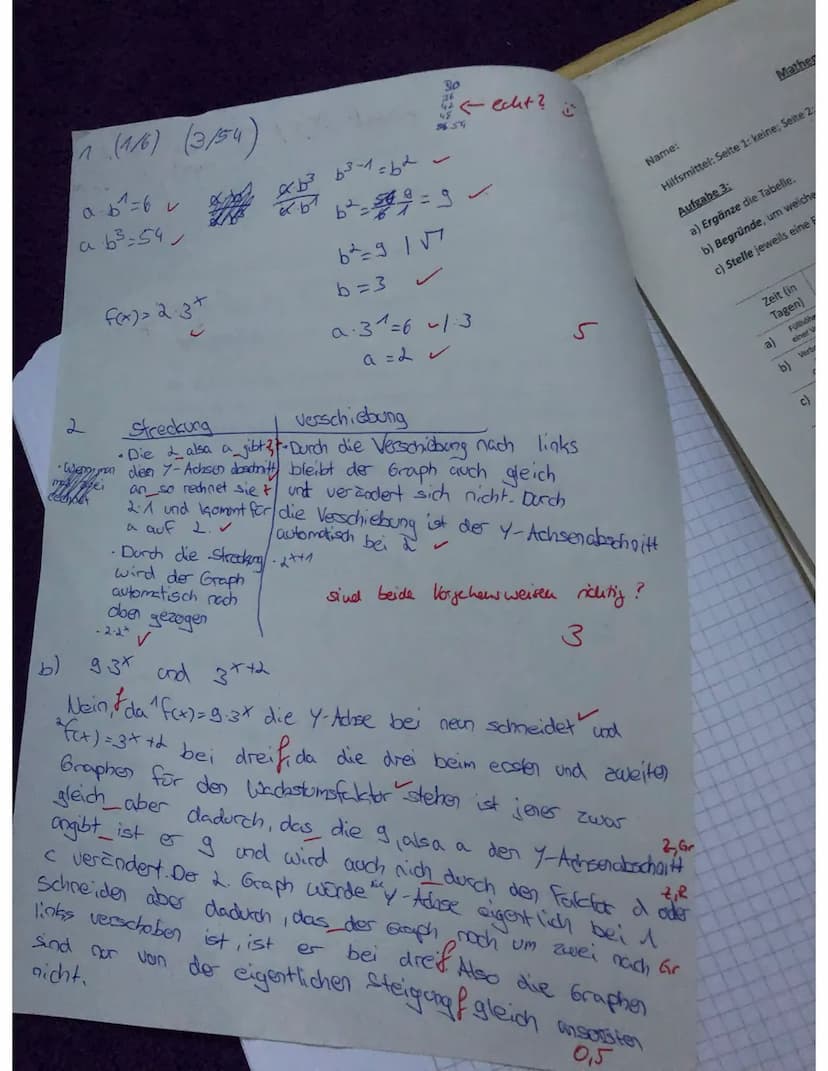 30
36
42
48
54
← echt? :)
1 (1/6) (3/54)
a·b¹=6 ✓
a·b³=54 ✓
a·b³
a·b¹
b³⁻¹=b² ✓
b²= 54/6 9/1 = 9 ✓
b²=9 | √
b=3 ✓
f(x)= 2·3ˣ ✓
a·3¹=6 ✓ |:3
a=2 ✓
5
2
Streckung
Verschiebung
· Die 2 also a gibt
den Y-Achsen abschnitt
an so rechnet sie
2·1 und kommt für
a auf 2. ✓
· Durch die Streckung
wird der Graph
automatisch nach
oben gezogen
· 2·2ˣ ✓
· Durch die Verschiebung nach links
bleibt der Graph auch gleich
und verändert sich nicht. Durch
die Verschiebung ist der Y-Achsenabschnitt
automatisch bei 2 ✓
· 2ˣ⁺¹
sind beide Vorgehensweisen richtig?
3
b) 9·3ˣ und 3ˣ⁺²
Nein, f da ¹f(x)=9·3ˣ die Y-Achse bei neun schneidet ✓ und
²f(x)=3ˣ⁺² bei drei f, da die drei beim ersten und zweiten
Graphen für den Wachstumsfaktor ✓ stehen ist jener zwar
gleich_aber dadurch, das_ die 9, also a den Y-Achsenabschnitt Z, Gr
angibt_ist er 9 und wird auch nich_ durch den Faktor d oder Z, R
c verändert. Der 2. Graph würde die Y-Achse eigentlich bei 1
schneiden aber dadurch, das_ der Graph noch um zwei nach Gr
links verschoben ist, ist er bei drei f. Also die Graphen
sind nur von der eigentlichen Steigung f gleich ansonsten
nicht.
0,5
Mathe
Name:
Hilfsmittel: Seite 1: keine; Seite 2:
Aufgabe 3:
a) Ergänze die Tabelle.
b) Begründe, um welche
c) Stelle jeweils eine F
Zeit (in
Tagen)
a)
Füllhöhe
einer V
b)
c)